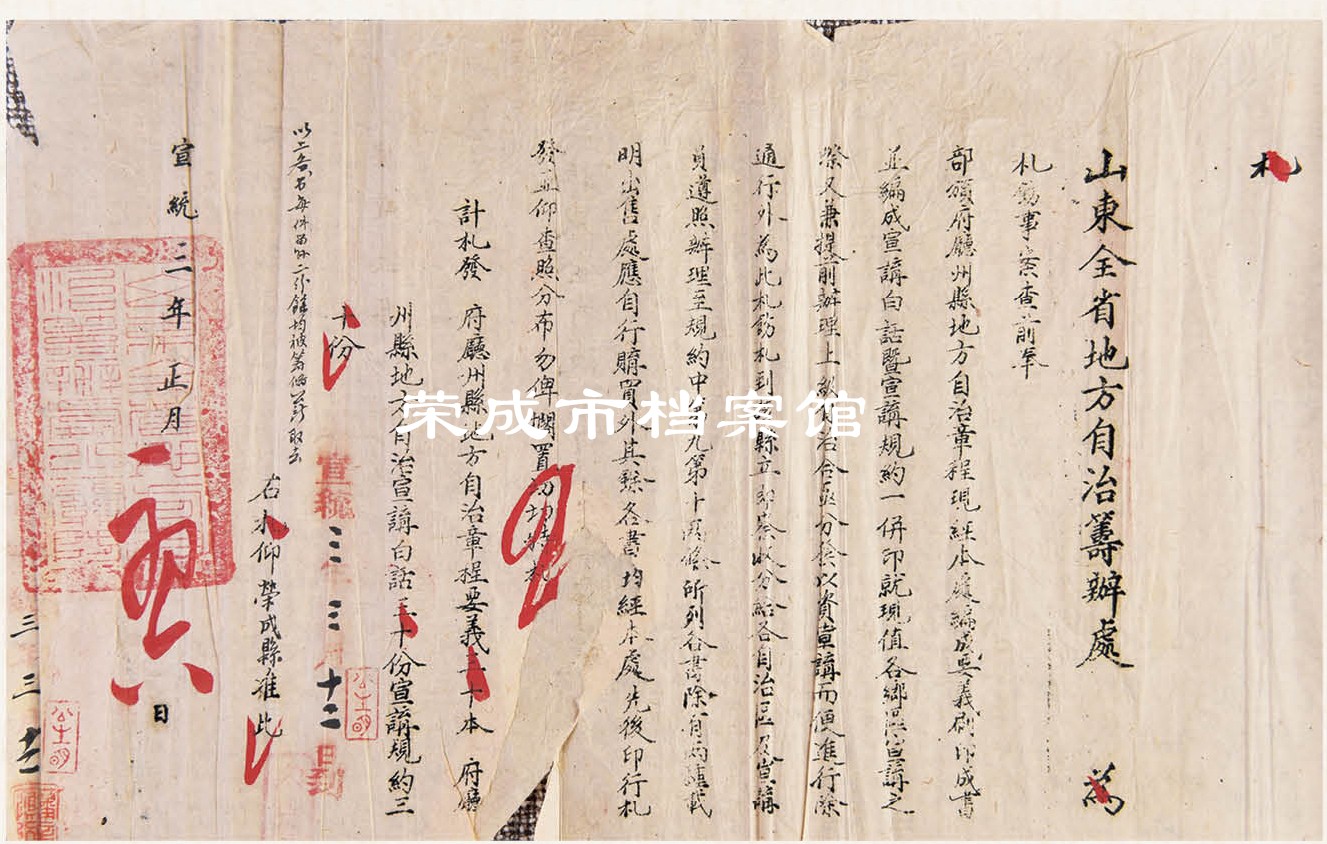 札
山東全省地方自治籌辦處 為
札飭事案查前奉
部頒府廳州縣地方自治章程現經本處編成要義刷印成書
並編成宣講白話暨宣講規約一併印就現值各鄉區宣講之
際又兼提前辦理上級自治合亟分發以資宣講而便進行除
通行外為此札飭札到縣立即查收分給各自治區及宣講
員遵照辦理至規約中第九第十兩條所列各書除有兩種載
明出售處應自行購買外其餘各書均經本處先後印行札
發亟仰查照分布勿俾擱置切切特札
計札發 府廳州縣地方自治章程要義三十本 府廳
州縣地方自治宣講白話三十份宣講規約三
十份
宣統三年三月十二日到
以上每件留二份餘均被籌備所取去
右札仰榮成縣准此
宣統三年正月 日
三 三 十二
荣成市档案馆